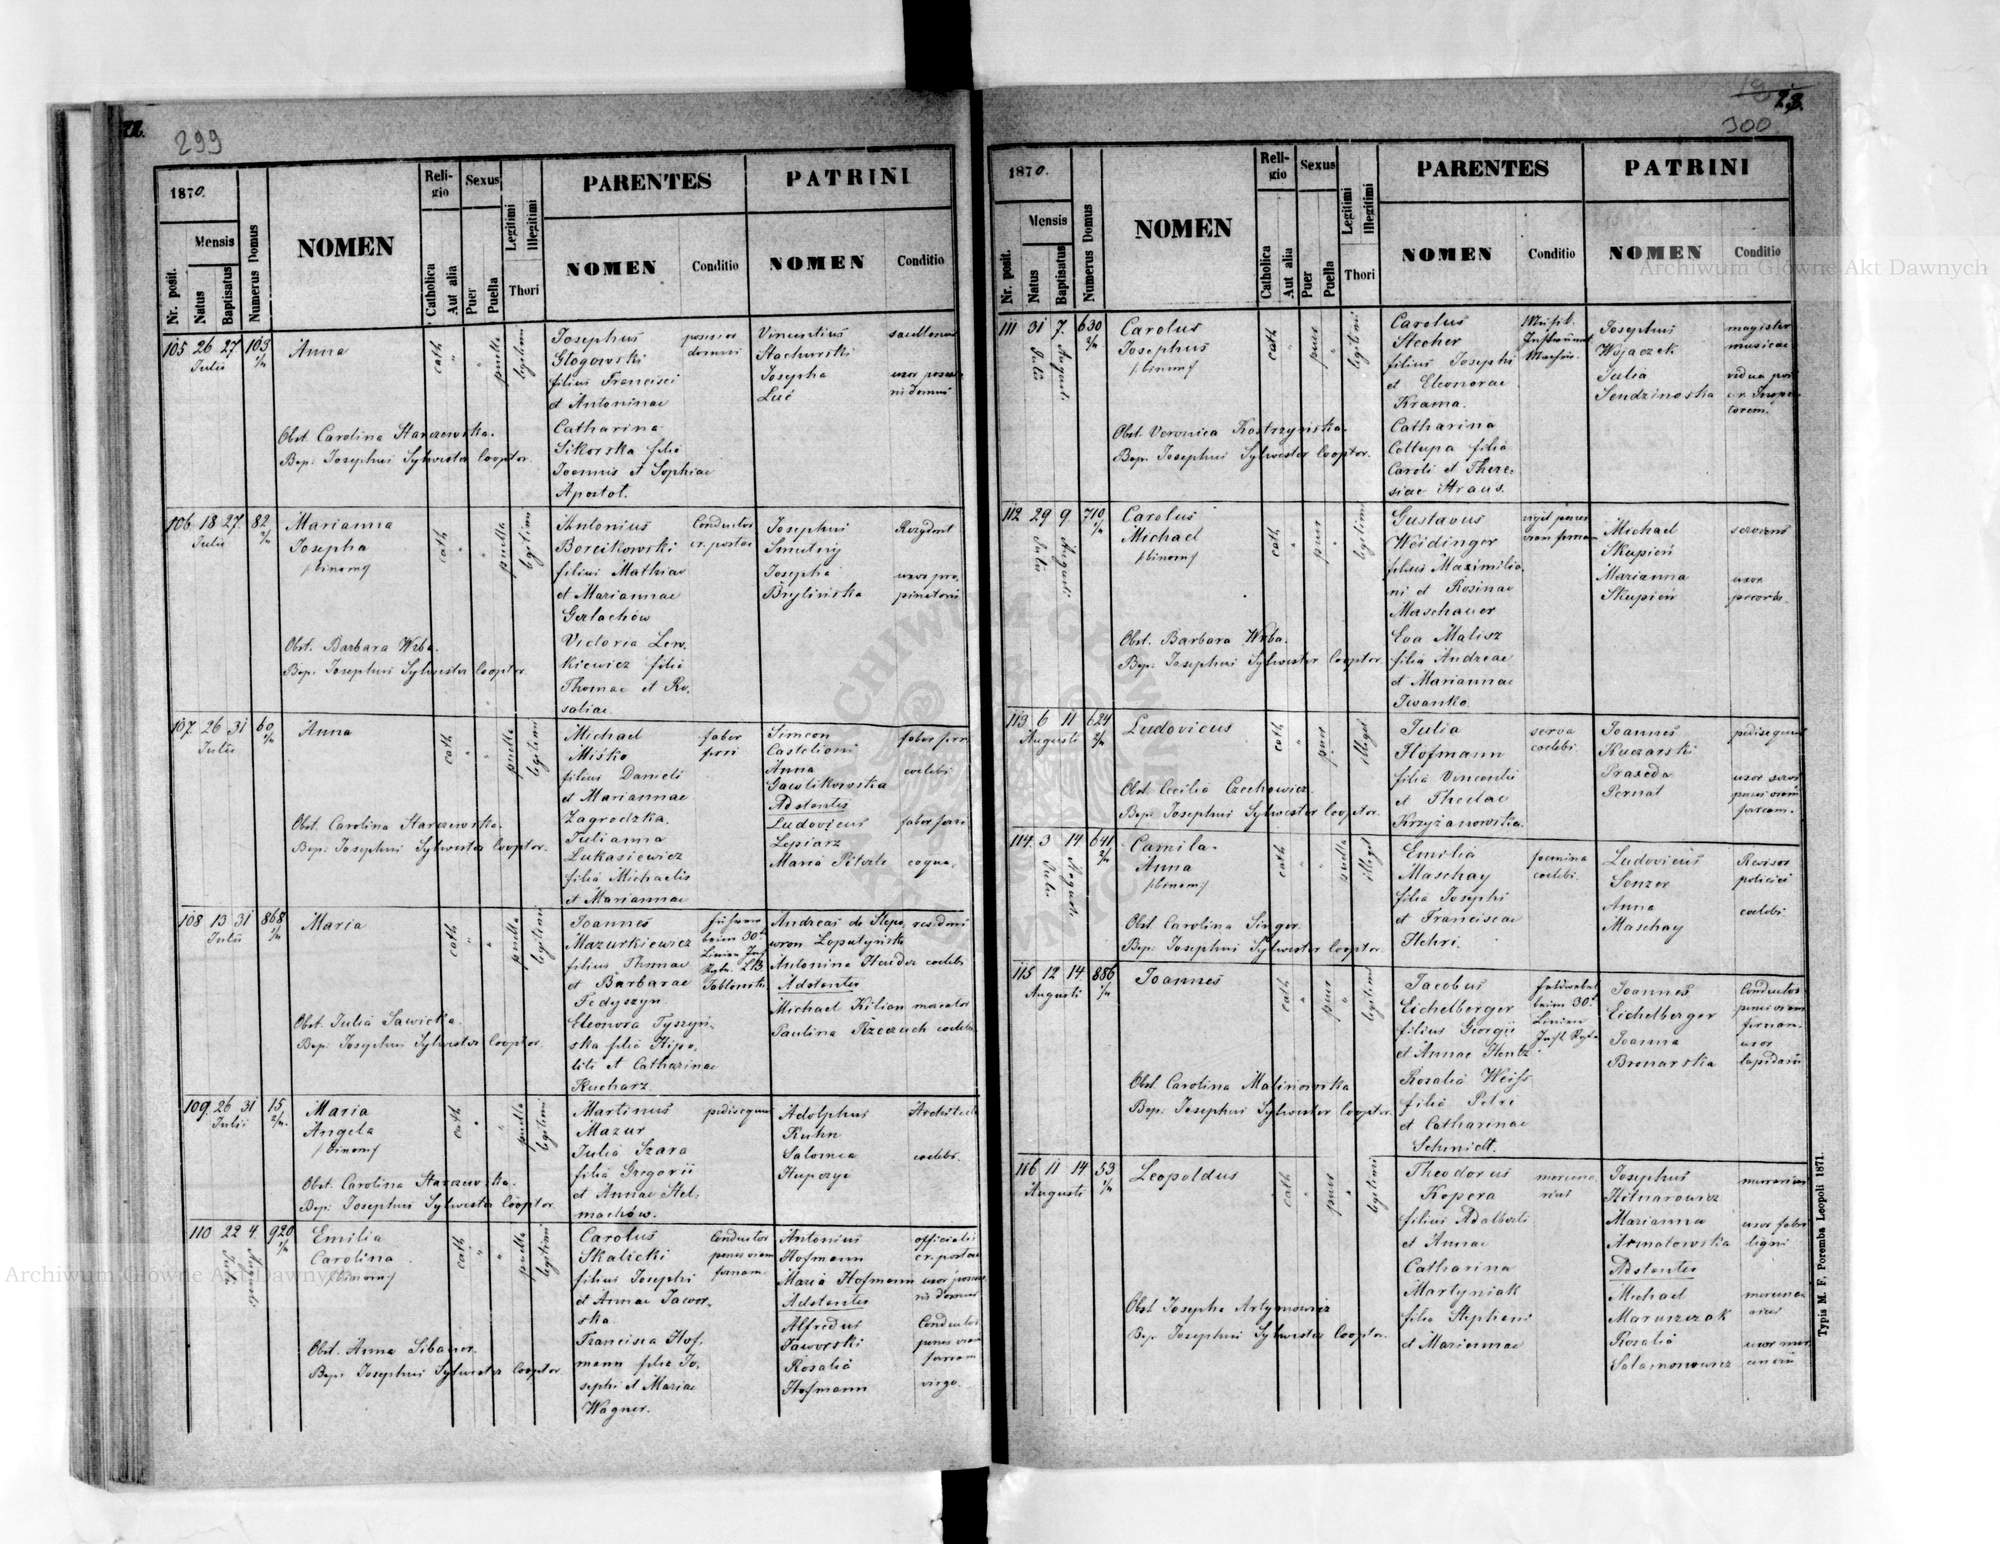 22.
299
1870.
Mensis
Nr. posit.
Natus
Baptisatus
Numerus Domus
NOMEN
Reli-
gio
Catholica
Aut alia
Sexus
Puer
Puella
Legitimi
Illegitimi
Thori
PARENTES
NOMEN
Conditio
PATRINI
NOMEN
Conditio
105 26 27 103
Julii
Anna
cath
puella
legitimi
Josephus
Głogowski
filius Francisci
et Antoninae
Catharina
Sikorska filia
Joannis et Sophiae
Apostoł.
possessor
domus
Vincentius
Stachurski
Josepha
Luć
uxor posses-
ris domus
Obst. Carolina Starczewska.
Bap: Josephus Sylwester Cooptor.
106. 18 27. 82
Julii
Marianna
Josepha
/:binom:/
cath
puella
legitimi
Antonius
Borcikowski
filius Mathiae
et Mariannae
Gerlachów
Victoria Lew-
kiewicz filia
Thomae et Ro-
saliae.
Conductor
cr. postae
Josephus
Smutny
Josepha
Brylińska
Rezydent
uxor pro-
pinatoris
Obst. Barbara Wrba.
Bap: Josephus Sylwester Cooptor.
107. 26 31 60
Julii
Anna
cath
puella
legitimi
Michael
Miśko
filius Danieli
et Mariannae
Zagrodzka.
Julianna
Łukasiewicz
filia Michaelis
et Mariannae
faber
ferri
Simeon
Castelioni
Anna
Gawlikowska
Adstantes
Ludovicus
Lepiarz
Maria Pitzele
faber ferri
coelebs
faber ferri
coqua.
Obst. Carolina Starczewska.
Bap: Josephus Sylwester Cooptor.
108 13 31 868
Julii
Maria
cath
puella
legitimi
Joannes
Mazurkiewicz
filius Thomae
et Barbarae
Fedyszyn
Eleonora Tyszyń-
ska filia Hipo-
liti et Catharinae
Kucharz.
beim 30t
Linien Inf
Andreas de Stepo-
wron Łopatyński
Antonina Hauder
Adstantes
Michael Kilian macator
Paulina Rzezuch coelebs
Obst. Julia Sawicka.
Bap: Josephus Sylwester Cooptor.
109. 26 31 15
Julii
Maria
Angela
/:binom:/
cath
puella
legitimi
Martinus
Mazur
Julia Szara
filia Gregorii
et Annae Stel-
machów.
pedisequus
Adolphus
Kuhn
Salomea
Hupczyc
Architectus
coelebs.
Obst. Carolina Starczewska.
Bap: Josephus Sylwester Cooptor.
110 22 4. 920
Julii Augusti
Emilia
Carolina
/:binom:/
cath
puella
legitimi
Carolus
Skalicki
filius Josephi
et Annae Jawor-
ska.
Francisca Hof-
mann filia Jo-
sephi et Mariae
Wagner.
Conductor
penes viam
ferream.
Antonius
Hofmann
Maria Hofmann
Adstantes
Alfredus
Jaworski
Rosalia
Hofmann
officialis
cr. postae
uxor posses-
ris domus
Conductor
penes viam
ferream
virgo.
Obst. Anna Sibauer.
Bap: Josephus Sylwester Cooptor.
23.
300
1870.
Mensis
Nr. posit.
Natus
Baptisatus
Numerus Domus
NOMEN
Reli-
gio
Catholica
Aut alia
Sexus
Puer
Puella
Legitimi
Illegitimi
Thori
PARENTES
NOMEN
Conditio
PATRINI
NOMEN
Conditio
111 31 7. 630
Julii Augusti
Carolus
Josephus
/:binom:/
cath
puer
legitimi
Carolus
Stecher
filius Josephi
et Eleonorae
Krama.
Catharina
Cettupa filia
Caroli et There-
siae Straus.
Musik.
Instrument
Machin.
Josephus
Wojaczek
Julia
Sendzinoska
magister
musicae
vidua post
cr. Inspec-
torem.
Obst. Veronica Kostrzyńska.
Bap. Josephus Sylwester Cooptor.
112 29 9 710
Julii Augusti
Carolus
Michael
/:binom:/
cath
puer
legitimi
Gustavus
Weidinger
filius Maximilia-
ni et Rosinae
Maschauer
Eva Malisz
filia Andreae
et Mariannae
Iwanko.
vigil penes
viam ferream
Michael
Skupień
Marianna
Skupień
uxor
Obst. Barbara Wrba.
Bap: Josephus Sylwester Cooptor.
113 6 11 624
Augusti
Ludovicus
cath
puer
illegit
Julia
Hofmann
filia Vincentii
et Theclae
Krzyżanowska.
serva
coelebs.
Joannes
Kuczarski
Praxeda
Pernat
pedisequus
uxor servi
penes viam
ferream.
Obst. Cecilia Czechowicz.
Bap: Josephus Sylwester Cooptor.
114. 3 14 641
Julii Augusti
Camila
Anna
/:binom:/
cath
puella
illegit
Emilia
Maschay
filia Josephi
et Franciscae
Hehri.
foemina
coelebs.
Ludovicus
Senzer
Anna
Maschay
Revisor
policiei
coelebs
Obst Carolina Singer.
Bap: Josephus Sylwester Cooptor.
115 12 14 886
Augusti
Joannes
cath
puer
legitimi
Jacobus
Eichelberger
filius Georgii
et Annae Hentz
Rosalia Weiss
filia Petri
et Catharinae
Schmidt.
feldwebel
beim 30t
Linien
Inft Rgt.
Joannes
Eichelberger
Joanna
Bronarska
Conductor
penes viam
ferream.
uxor
lapidarii
Obst Carolina Malinowska
Bap: Josephus Sylwester Cooptor.
116 11 14 53
Augusti
Leopoldus
cath
puer
legitimi
Theodorus
Kopera
filius Adalberti
et Annae
Catharina
Martyniak
filia Stephani
et Mariannae
mercena-
rius
Josephus
Hilnarowicz
Marianna
Armatowska
Adstantes
Michael
Maruszczak
Rosalia
Salamonowicz
murarius
uxor fabri
ligni
mercena-
rius
uxor mer-
cenarii
Obst Josepha Artymowicz
Bap Josephus Sylwester Cooptor.
Typis M. F. Poremba Leopoli 1871.
Archiwum Główne Akt Dawnych
Archiwum Główne Akt Dawnych